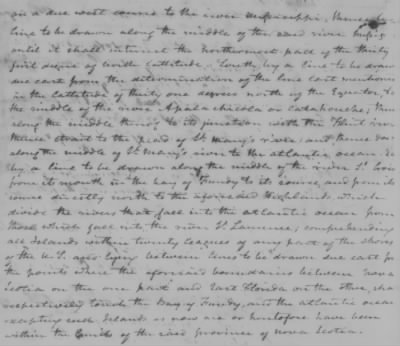 on a due west course to the river Mississippi, thence by a
line to be drawn along the middle of the said river Missis
until it shall intersect the northernmost part of the thirty
first degree of north lattitude. South, by a line to be drawn
due east from the determination of the line last mentioned
in the lattitude of thirty one degrees north of the Equator, to
the middle of the river Apalachicola or Catahouche; thence
along the middle thereof to its junction with the Flint river
thence strait to the head of St Mary's river; and thence down
along the middle of St Mary's river to the atlantic ocean. E
by a line to be drawn along the middle of the river St Croix
from it mouth in the bay of Fundy to its source, and from its
source directly north to the aforesaid Highlands which
divide the rivers that fall into the atlantic ocean from
those which fall into the river St Laurence; comprehending
all Islands within twenty leagues of any part of the shores
of the U.S. lying between lines to be drawn due east from
the points where the aforesaid boundaries between Nova
Scotia on the one part and East Florida on the other, shall
respectively touch the Bay of Fundy, and the atlantic ocean
excepting such Islands as now are or heretofore have been
within the limits of the said province of Nova Scotia.